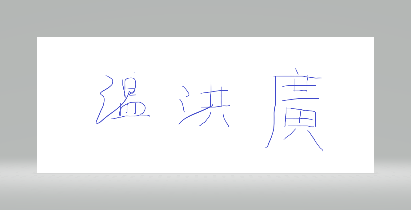 温洪廣